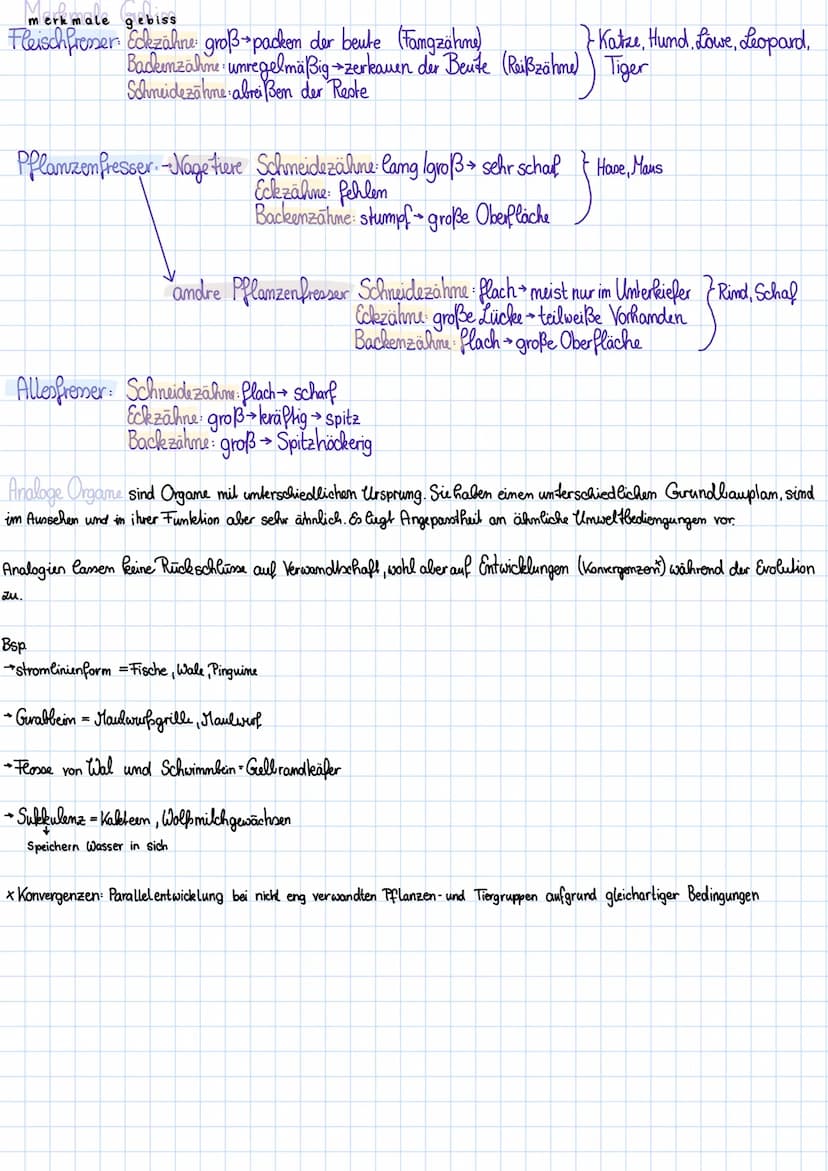 Merkmale Gebiss
merkmale gebiss
Fleischfresser: Eckzähne: groß→packen der beute (Fangzähne) } Katze, Hund, Löwe, Leopard,
Backenzähne: unregelmäßig→zerkauen der Beute (Reißzähne) Tiger
Schneidezähne: abreißen der Reste
Pflanzenfresser:→Nagetiere Schneidezähne: lang/groß→ sehr scharf } Hase, Maus
Eckzähne: fehlen
Backenzähne: stumpf→ große Oberfläche
andre Pflanzenfresser Schneidezähne: flach→ meist nur im Unterkiefer } Rind, Schaf
Eckzähne: große Lücke→ teilweiße Vorhanden
Backenzähne: flach→ große Oberfläche
Allesfresser: Schneidezähne: flach→ scharf
Eckzähne: groß→kräftig→ spitz
Backzähne: groß→ Spitzhöckerig
Analoge Organe sind Organe mit unterschiedlichen Ursprung. Sie haben einen unterschiedlichen Grundbauplan, sind
im Aussehen und in ihrer Funktion aber sehr ähnlich. Es liegt Angepasstheit an ähnliche Umweltbediengungen vor.
Analogien lassen keine Rückschlüsse auf Verwandtschaft, wohl aber auf Entwicklungen (Konvergenzen*) während der Evolution
zu.
Bsp
→stromlinienform = Fische, Wale, Pinguine
→ Grabbein = Maulwurfsgrille, Maulwurf
→Flosse von Wal und Schwimmbein = Gelbrandkäfer
→ Sukkulenz = Kakteen, Wolfsmilchgewächsen
↓
Speichern Wasser in sich
x Konvergenzen: Parallelentwicklung bei nicht eng verwandten Pflanzen- und Tiergruppen aufgrund gleichartiger Bedingungen